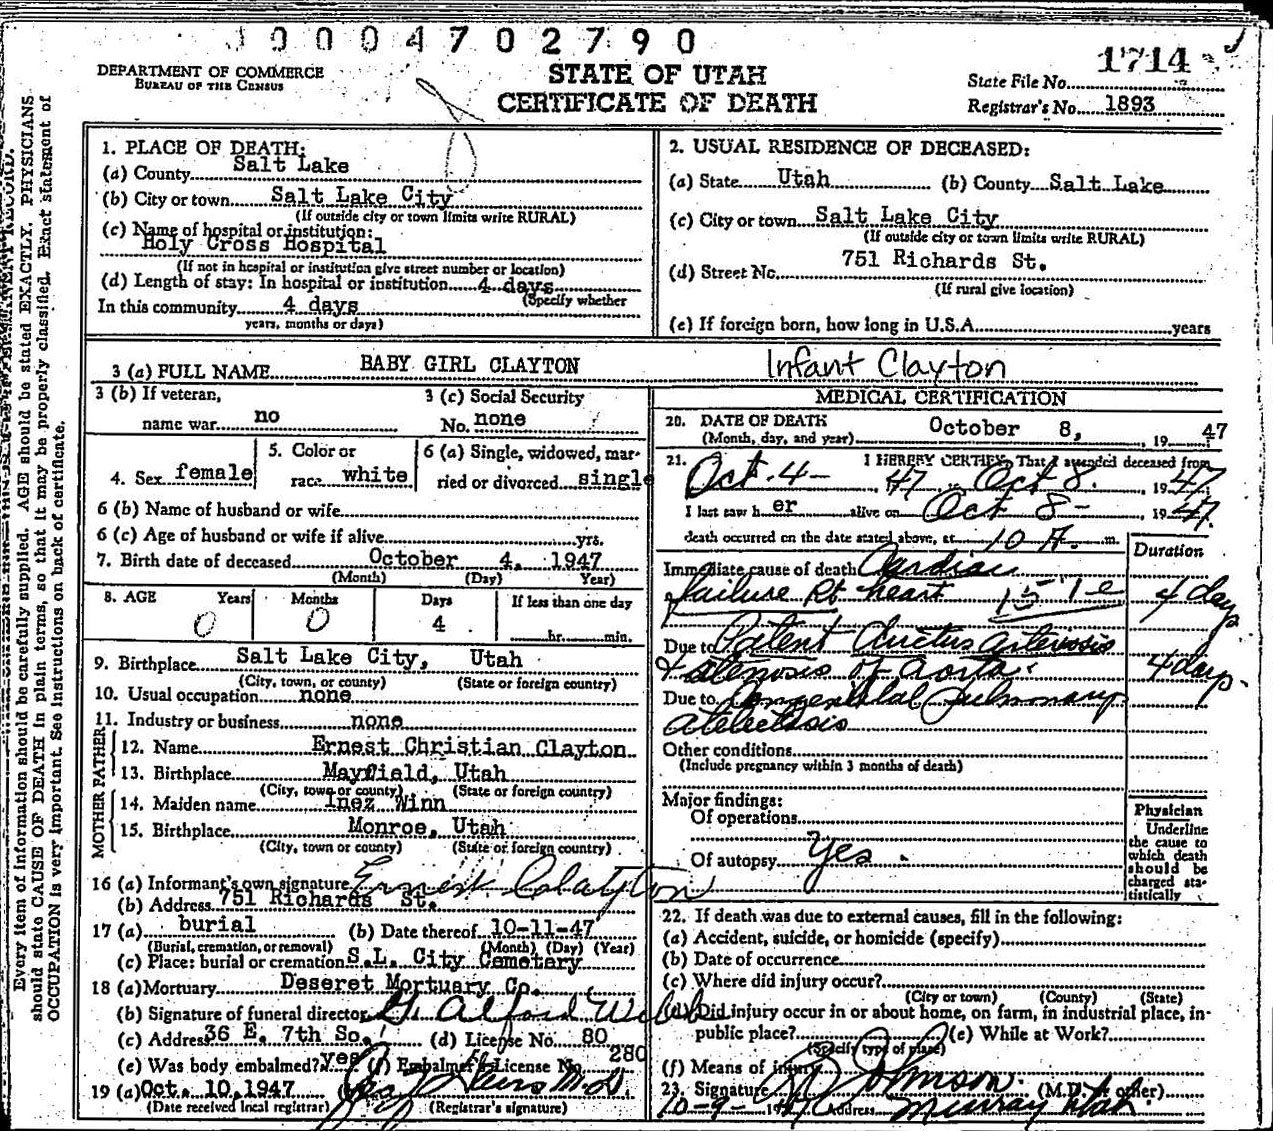 10004702790
DEPARTMENT OF COMMERCE
BUREAU OF THE CENSUS
STATE OF UTAH
CERTIFICATE OF DEATH
State File No. 1714
Registrar's No. 1893
Every item of information should be carefully supplied. AGE should be stated EXACTLY. PHYSICIANS
should state CAUSE OF DEATH in plain terms, so that it may be properly classified. Exact statement of
OCCUPATION is very important. See instructions on back of certificate.
1. PLACE OF DEATH:
(a) County Salt Lake
(b) City or town Salt Lake City
(If outside city or town limits write RURAL)
(c) Name of hospital or institution:
Holy Cross Hospital
(If not in hospital or institution give street number or location)
(d) Length of stay: In hospital or institution 4 days
(Specify whether
In this community 4 days
years, months or days)
2. USUAL RESIDENCE OF DECEASED:
(a) State Utah (b) County Salt Lake
(c) City or town Salt Lake City
(If outside city or town limits write RURAL)
(d) Street No. 751 Richards St.
(If rural give location)
(e) If foreign born, how long in U.S.A. years
3 (a) FULL NAME BABY GIRL CLAYTON Infant Clayton
3 (b) If veteran,
name war no
3 (c) Social Security
No. none
4. Sex female
5. Color or
race white
6 (a) Single, widowed, mar-
ried or divorced single
6 (b) Name of husband or wife
6 (c) Age of husband or wife if alive yrs.
7. Birth date of deceased October 4, 1947
(Month) (Day) Year)
8. AGE Years Months Days If less than one day
0 0 4 hr. min.
9. Birthplace Salt Lake City, Utah
(City, town, or county) (State or foreign country)
10. Usual occupation none
11. Industry or business none
FATHER
12. Name Ernest Christian Clayton
13. Birthplace Mayfield, Utah
(City, town or county) (State or foreign country)
MOTHER
14. Maiden name Inez Winn
15. Birthplace Monroe, Utah
(City, town or county) (State or foreign country)
16 (a) Informant's own signature Ernest Clayton
(b) Address 751 Richards St.
17 (a) burial (b) Date thereof 10-11-47
(Burial, cremation, or removal) (Month) (Day) (Year)
(c) Place: burial or cremation S.L. City Cemetary
18 (a) Mortuary Deseret Mortuary Co.
(b) Signature of funeral director
(c) Address 36 E. 7th So. (d) License No. 80
(e) Was body embalmed? yes (f) Embalmer's License No. 280
19 (a) Oct. 10, 1947
(Date received local registrar) (Registrar's signature)
MEDICAL CERTIFICATION
20. DATE OF DEATH
(Month, day, and year) October 8, 19 47
21. I HEREBY CERTIFY, That I attended deceased from
Oct. 4 - 47 Oct 8. 1947
I last saw h er alive on Oct 8 - 1947
death occurred on the date stated above, at 10 A. m.
Duration
Immediate cause of death Cardiac
failure Rt heart 4 days
Due to Patent ductus arteriosis
& stenosis of aorta 4 days.
Due to Congenital Pulmonary
atelectasis
Other conditions
(Include pregnancy within 3 months of death)
Major findings:
Of operations
Of autopsy yes.
Physician
Underline
the cause to
which death
should be
charged sta-
tistically
22. If death was due to external causes, fill in the following:
(a) Accident, suicide, or homicide (specify)
(b) Date of occurrence
(c) Where did injury occur?
(City or town) (County) (State)
(d) Did injury occur in or about home, on farm, in industrial place, in-
public place? (e) While at Work?
(Specify type of place)
(f) Means of injury
23. Signature Johnson. (M.D. or other)
10-9-1947 Address Murray Utah.